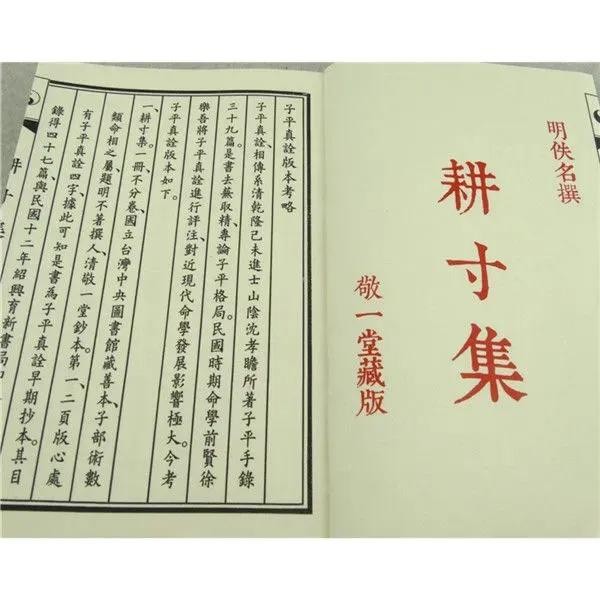 明佚名撰
耕寸集
敬一堂藏版
子平真詮版本考略
子平真詮、相傳系清乾隆己未進士山陰沈孝瞻所著子平手錄
三十九篇。是書去蕪取精、專論子平格局。民國時期命學前賢徐
樂吾將子平真詮進行評注、對近現代命學發展影響極大。今考
子平真詮版本如下。
一、耕寸集。一冊、不分卷、國立台灣中央圖書館藏善本、子部術數
類命相之屬、題明不著撰人、清敬一堂鈔本。第一、二頁版心處
有子平真詮四字、據此可知是書為子平真詮早期抄本。其目
錄得四十七篇、與民國十二年紹興育新書局